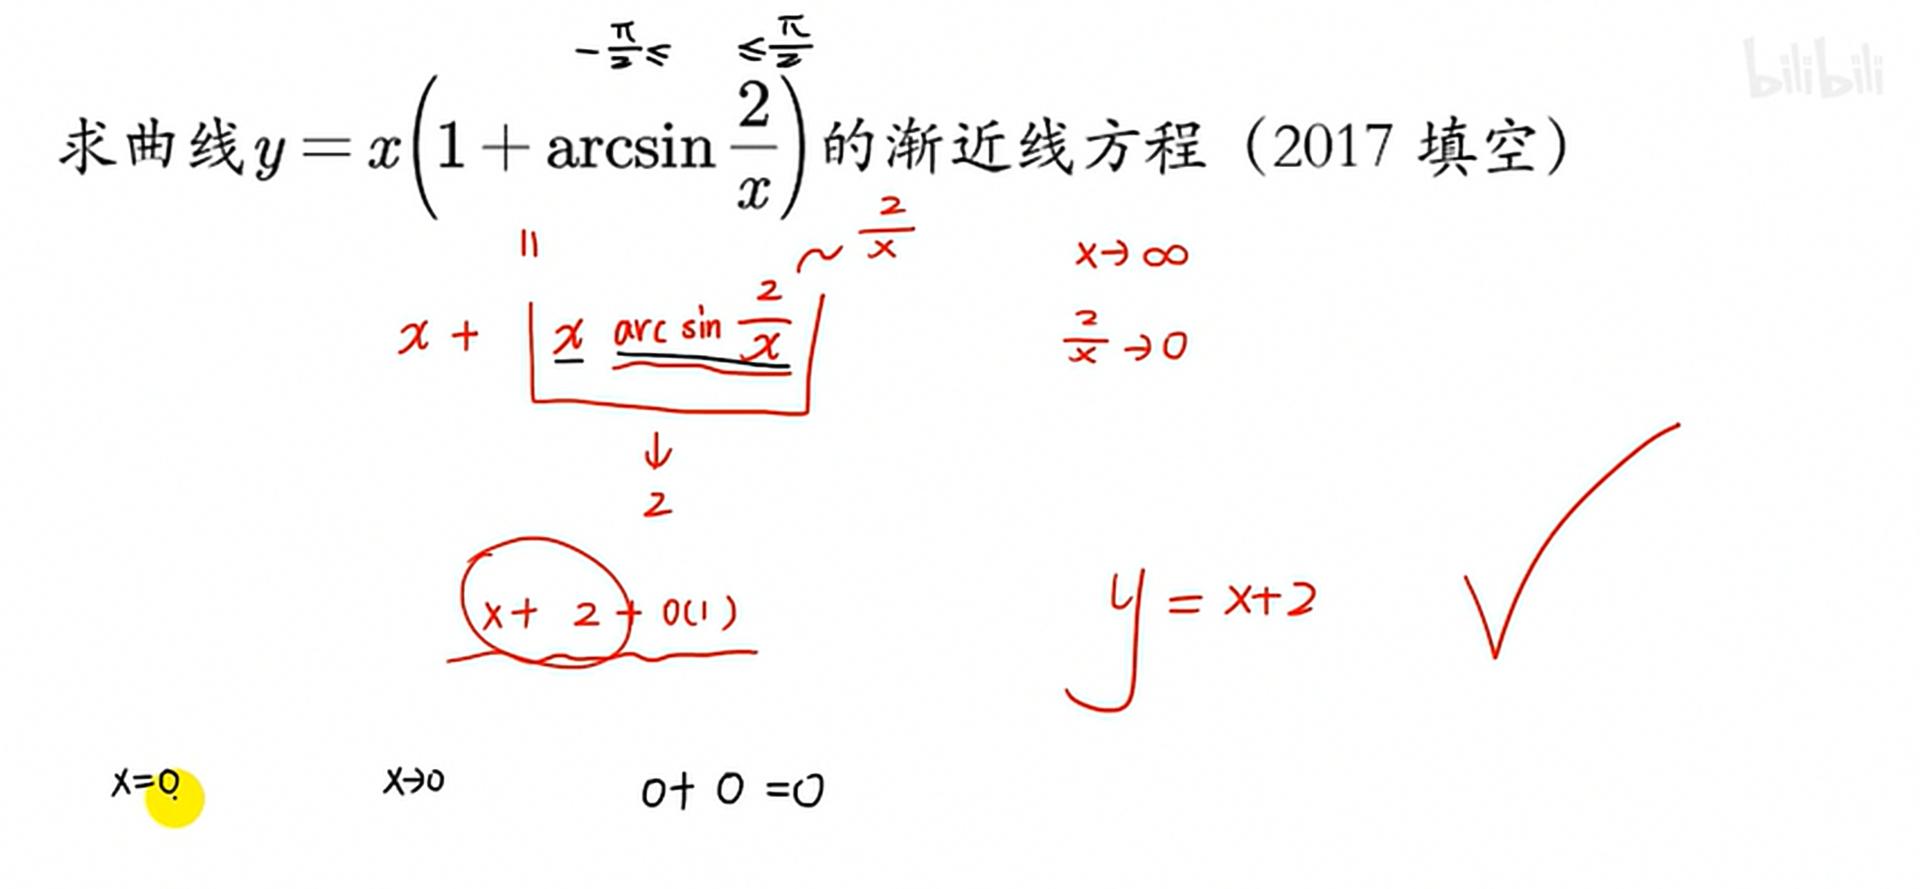 -π/2 ≤ ≤ π/2
bilibili
求曲线y = x(1 + arcsin 2/x)的渐近线方程（2017 填空）
= ~ 2/x x→∞
x + x arcsin 2/x 2/x →0
↓
2
x+ 2 + o(1) y = x+2 √
x=0 x→0 0+ 0 =0